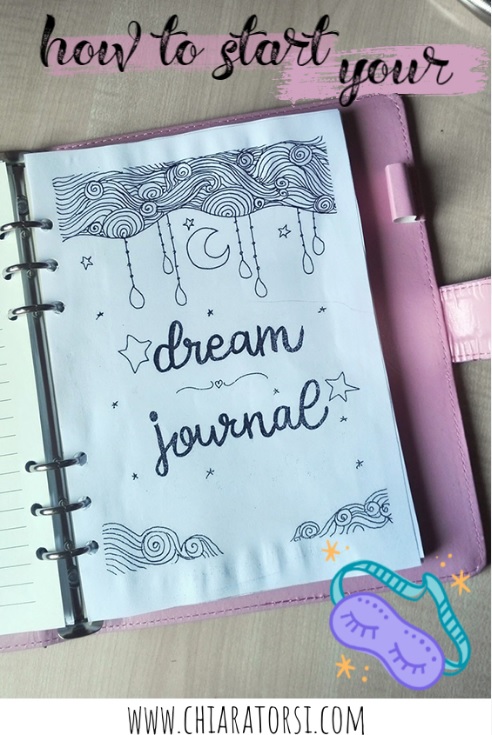 how to start
your
dream
journal
WWW.CHIARATORSI.COM